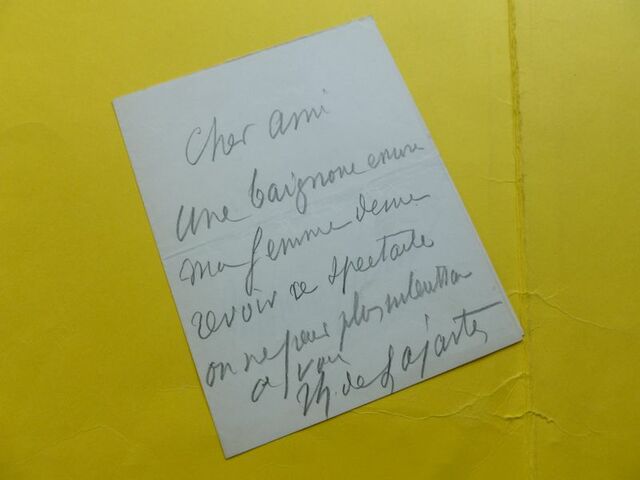 Cher ami
une baignoire encore
ma femme desire
revoir ce spectacle
on ne peut plus
a vous
Th. de Lajarte